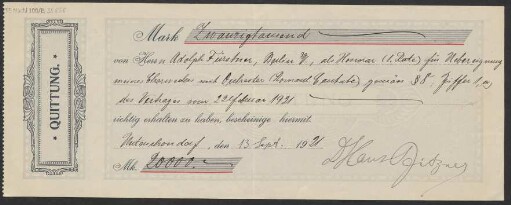 QUITTUNG.
Mark Zwanzigtausend
von Herrn Adolph Fürstner, Berlin W., als Honorar (1. Rate) für Uebereignung
meines Chorwerkes mit Orchester (Romant. Kantate) gemäss § 8 Ziffer 1,a)
des Vertrages vom 22. Februar 1921
richtig erhalten zu haben, bescheinige hiermit.
den 13. Sept. 1921
Mk. 20000.-
D. Hans Pfitzner